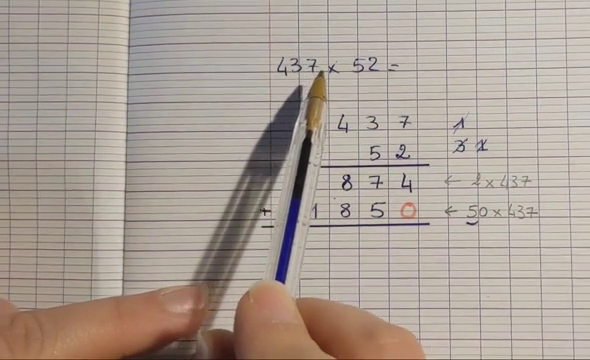 437 x 52 =
4 3 7 1
5 2 3 1
8 7 4 ← 2 x 437
+ 1 8 5 0 ← 50 x 437